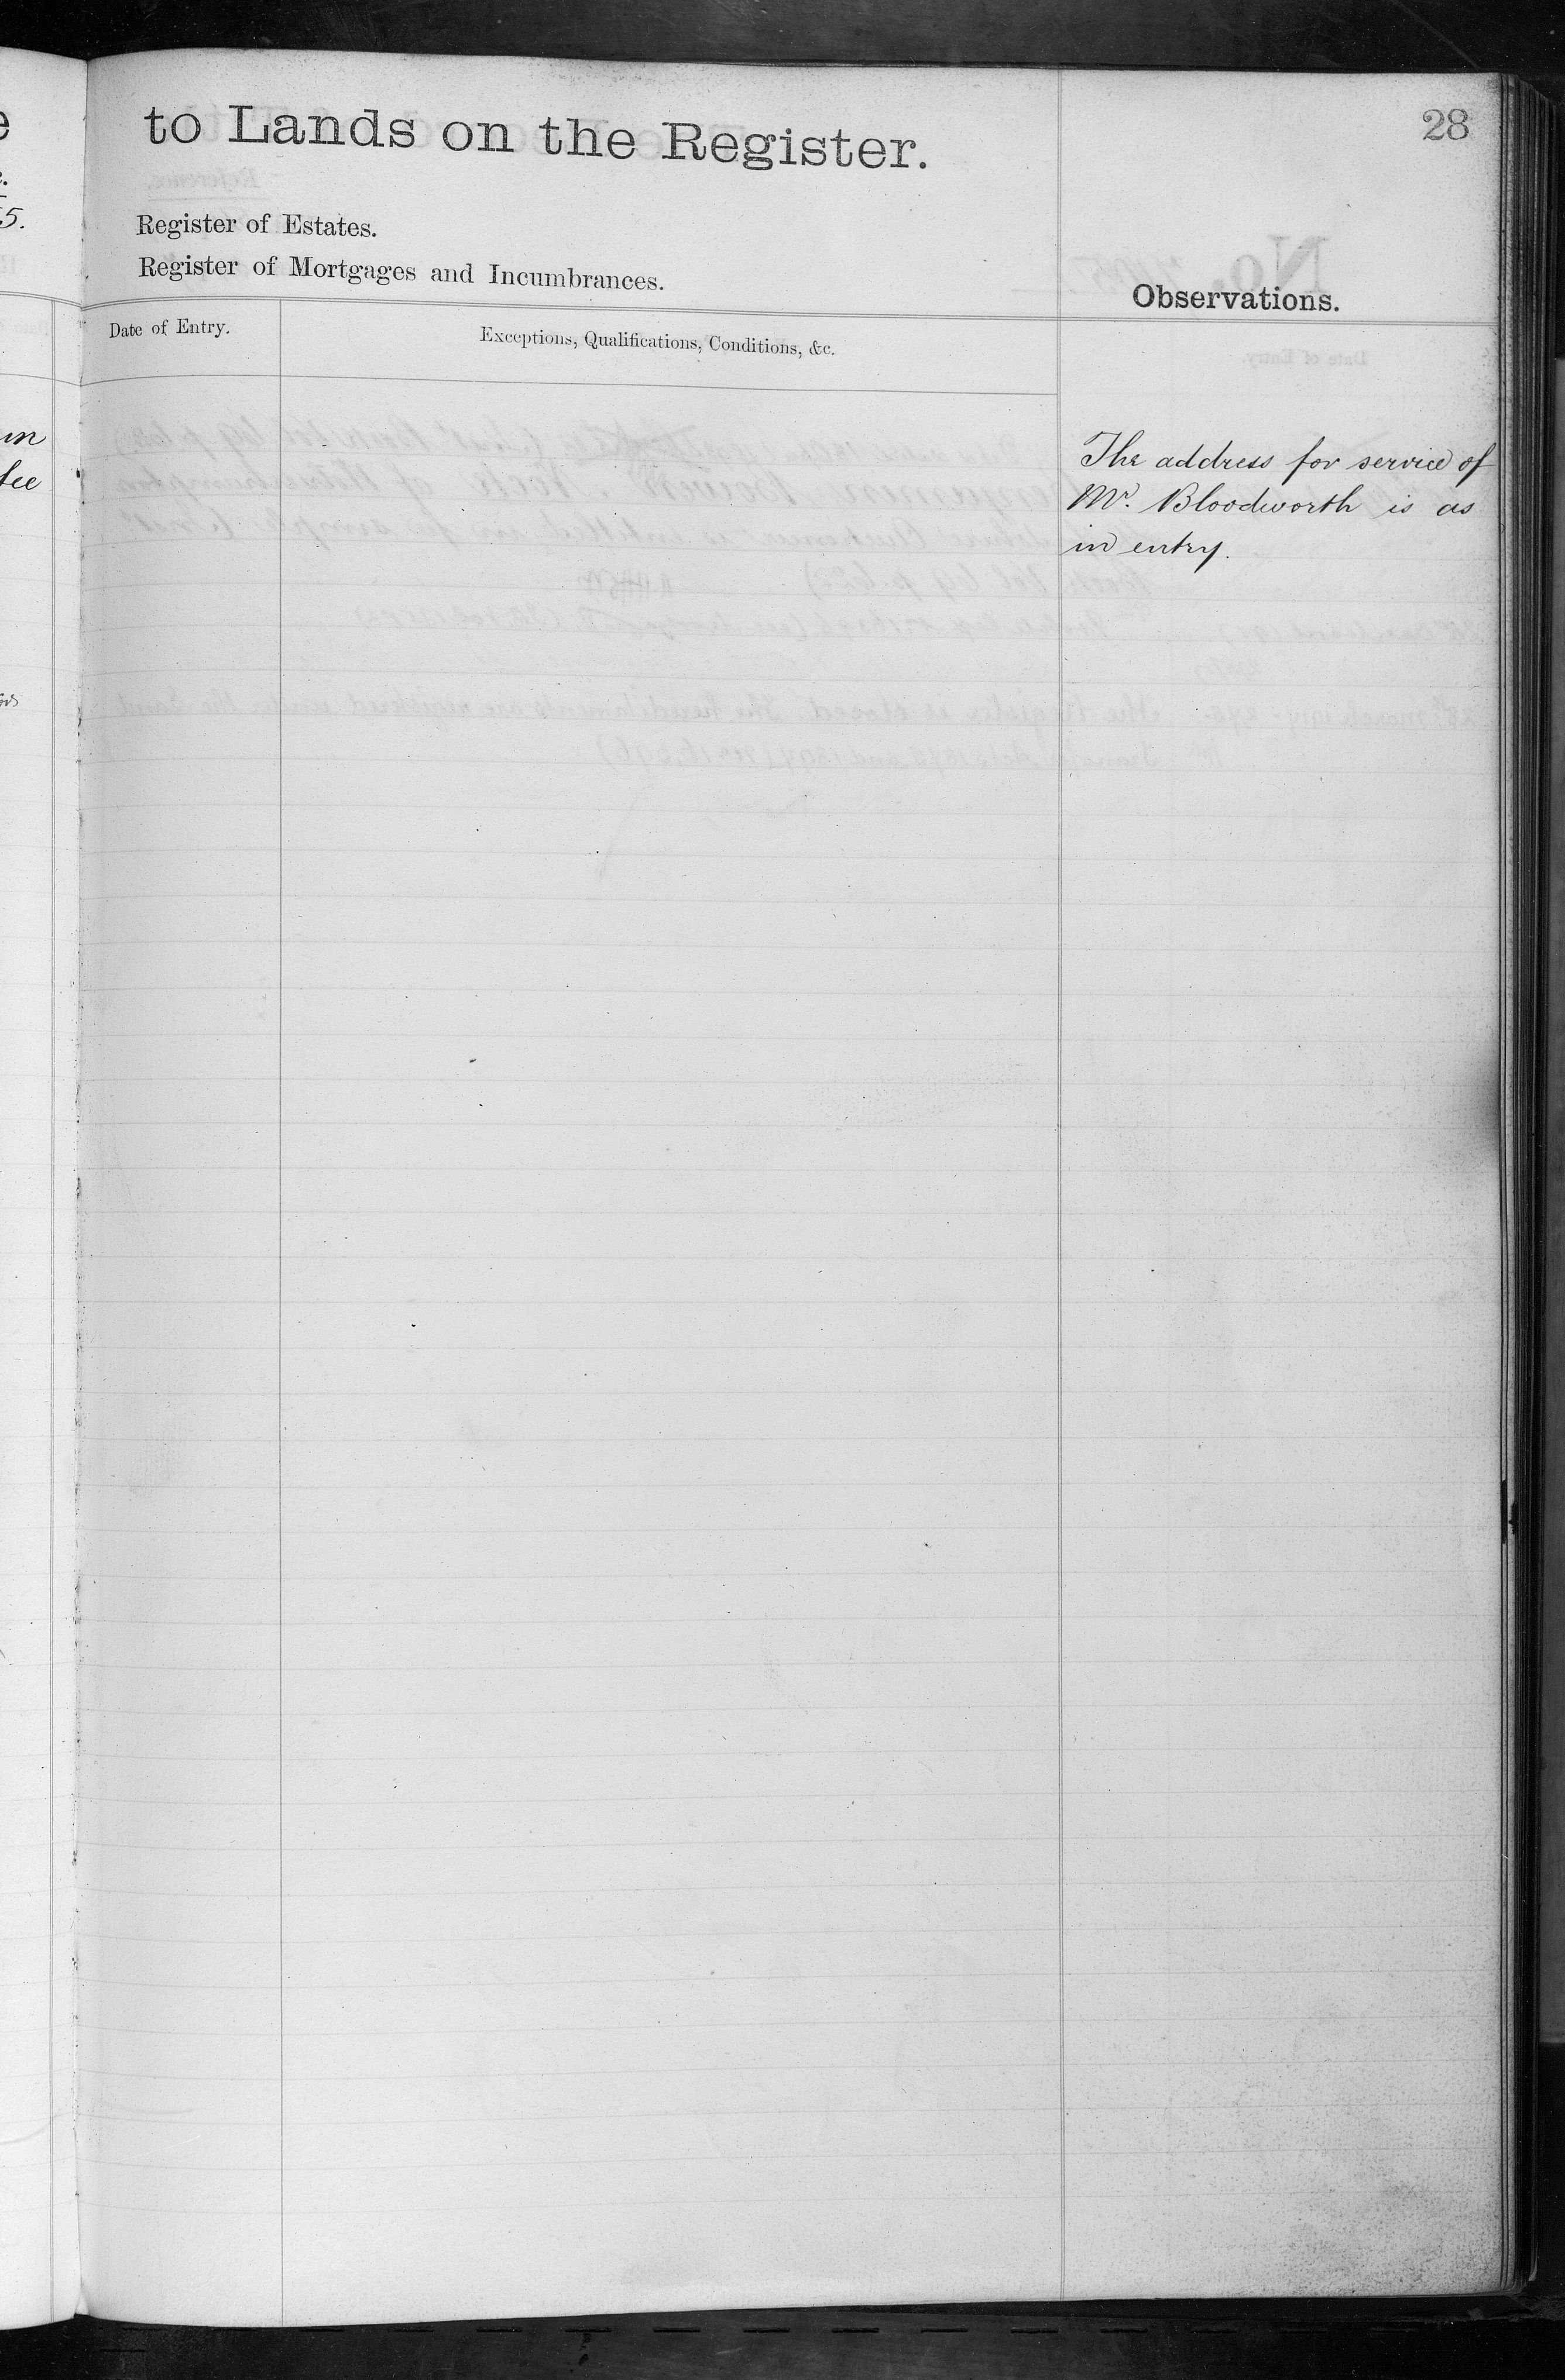 to Lands on the Register.
28
Register of Estates.
Register of Mortgages and Incumbrances.
Observations.
Date of Entry.
Exceptions, Qualifications, Conditions, &c.
The address for service of
Mr. Bloodworth is as
in entry.